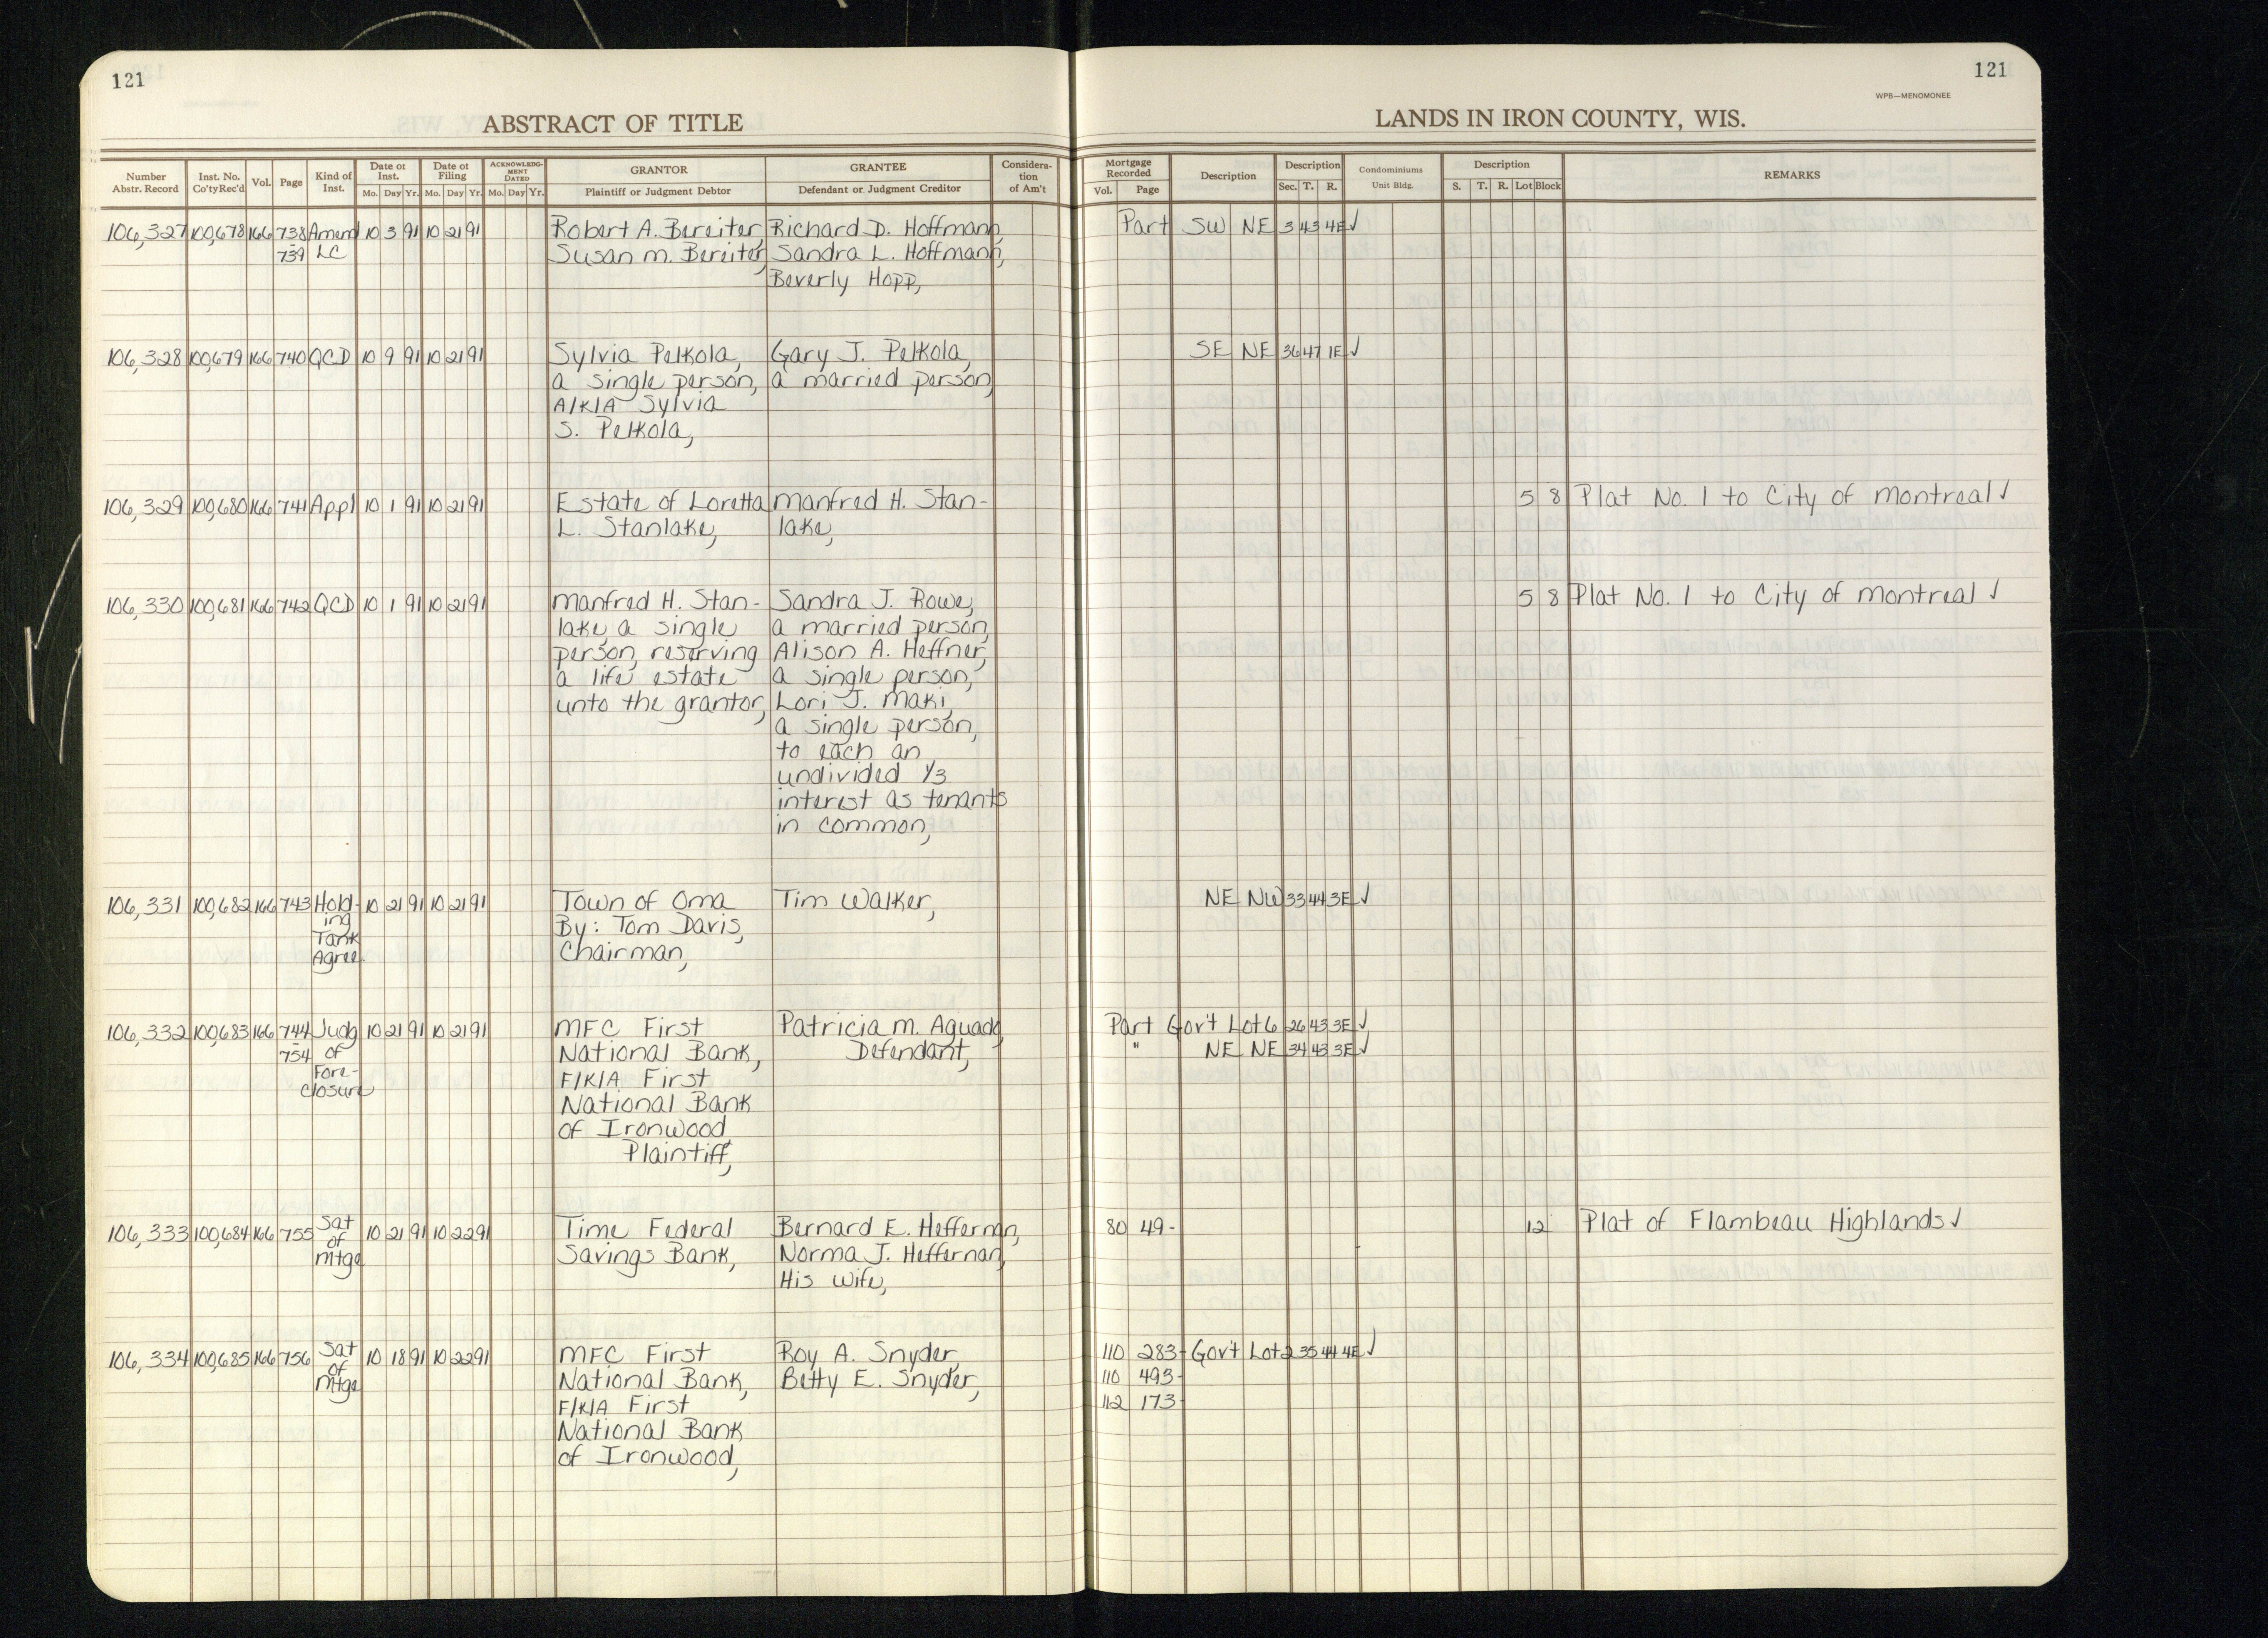 121
121
WPB—MENOMONEE
ABSTRACT OF TITLE
LANDS IN IRON COUNTY, WIS.
Number Abstr. Record | Inst. No. Co'ty Rec'd | Vol. | Page | Kind of Inst. | Date of Inst. Mo. Day Yr. | Date of Filing Mo. Day Yr. | ACKNOWLEDGMENT DATED Mo. Day Yr. | GRANTOR Plaintiff or Judgment Debtor | GRANTEE Defendant or Judgment Creditor | Consideration of Am't | Mortgage Recorded Vol. Page | Description | Description Sec. T. R. | Condominiums Unit Bldg. | Description S. T. R. Lot Block | REMARKS
106,327 100,678 166 738 Amend 10 3 91 10 21 91 Robert A. Bereiter, Richard D. Hoffmann, Part SW NE 3 43 4E ✓
- 739 LC Susan M. Bereiter, Sandra L. Hoffmann,
Beverly Hopp,
106,328 100,679 166 740 QCD 10 9 91 10 21 91 Sylvia Pelkola, Gary J. Pelkola, SE NE 36 47 1E ✓
a single person, a married person,
A/K/A Sylvia
S. Pelkola,
106,329 100,680 166 741 Appl 10 1 91 10 21 91 Estate of Loretta Manfred H. Stan- 5 8 Plat No. 1 to City of Montreal ✓
L. Stanlake, lake,
106,330 100,681 166 742 QCD 10 1 91 10 21 91 Manfred H. Stan- Sandra J. Rowe, 5 8 Plat No. 1 to City of Montreal ✓
lake, a single a married person,
person, reserving Alison A. Heffner,
a life estate a single person,
unto the grantor, Lori J. Maki,
a single person,
to each an
undivided 1/3
interest as tenants
in common,
106,331 100,682 166 743 Hold- 10 21 91 10 21 91 Town of Oma Tim Walker, NE NW 33 44 3E ✓
ing By: Tom Davis,
Tank Chairman,
Agree.
106,332 100,683 166 744 Judg 10 21 91 10 21 91 MFC First Patricia M. Aguado Part Gov't Lot 6 26 43 3E ✓
- 754 of National Bank, Defendant, " NE NE 34 43 3E ✓
Fore- F/K/A First
closure National Bank
of Ironwood,
Plaintiff,
106,333 100,684 166 755 Sat 10 21 91 10 22 91 Time Federal Bernard E. Heffernan, 80 49- 12 Plat of Flambeau Highlands ✓
of Savings Bank, Norma J. Heffernan,
Mtge His Wife,
106,334 100,685 166 756 Sat 10 18 91 10 22 91 MFC First Roy A. Snyder, 110 283- Gov't Lot 2 35 44 4E ✓
of National Bank, Betty E. Snyder, 110 493-
Mtge F/K/A First 112 173-
National Bank
of Ironwood,